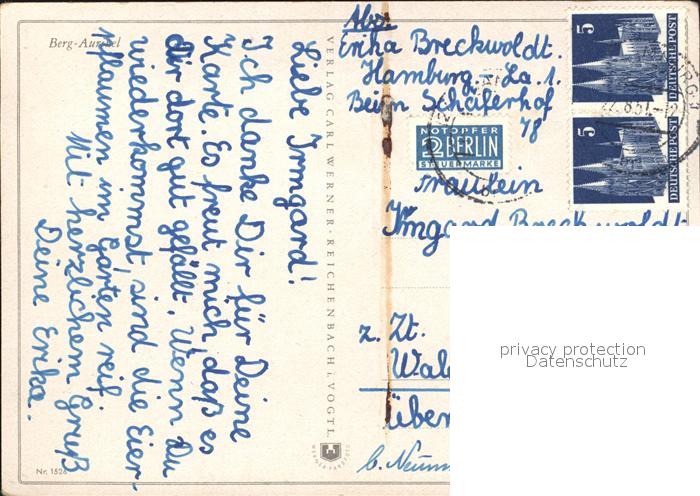 Berg-Aurikel
Liebe Irmgard!
Ich danke Dir für Deine
Karte. Es freut mich, daß es
dir dort gut gefällt. Wenn Du
wiederkommst, sind die Eier-
pflaumen im Garten reif.
Mit herzlichem Gruß
Deine Erika.
Nr. 1526
VERLAG CARL WERNER · REICHENBACH I. VOGTL.
Abs.
Erika Breckwoldt.
Hamburg - La. 1.
Beim Schäferhof
78
5
DEUTSCHE POST
5
DEUTSCHE POST
NOTOPFER
2 BERLIN
STEUERMARKE
Fräulein
Irmgard Breckwoldt
z. Zt.
privacy protection
Datenschutz